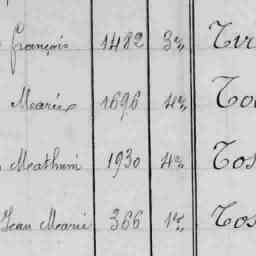 François 1482 3e Tir
Marie 1696 4e Toc
Mathurin 1930 4e Tos
Jean Marie 366 1e Tos